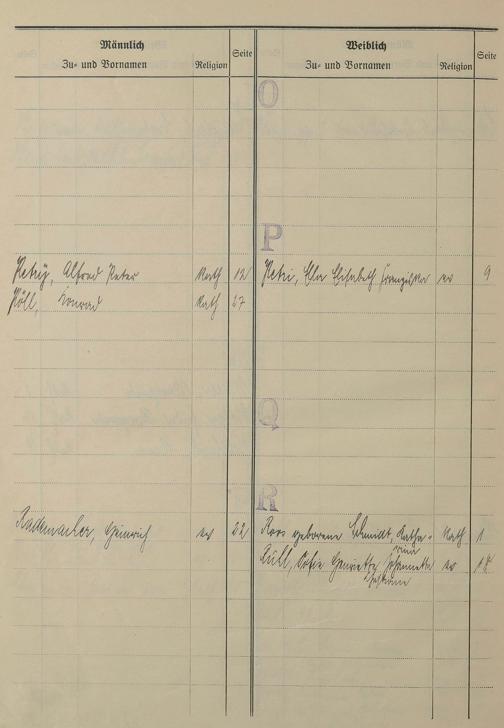 Männlich
Zu- und Vornamen
Religion
Seite
Weiblich
Zu- und Vornamen
Religion
Seite
O
P
Petry, Alfred Peter Kath 12
Petri, Ella Elisabeth Franziska ev 9
Pöll, Konrad Kath 27
Q
R
Rademacher, Heinrich ev 22
Roos geborene Schmidt, Katha- Kath 1
rina
Rühl, Sofie Henriette Johannette ev 18